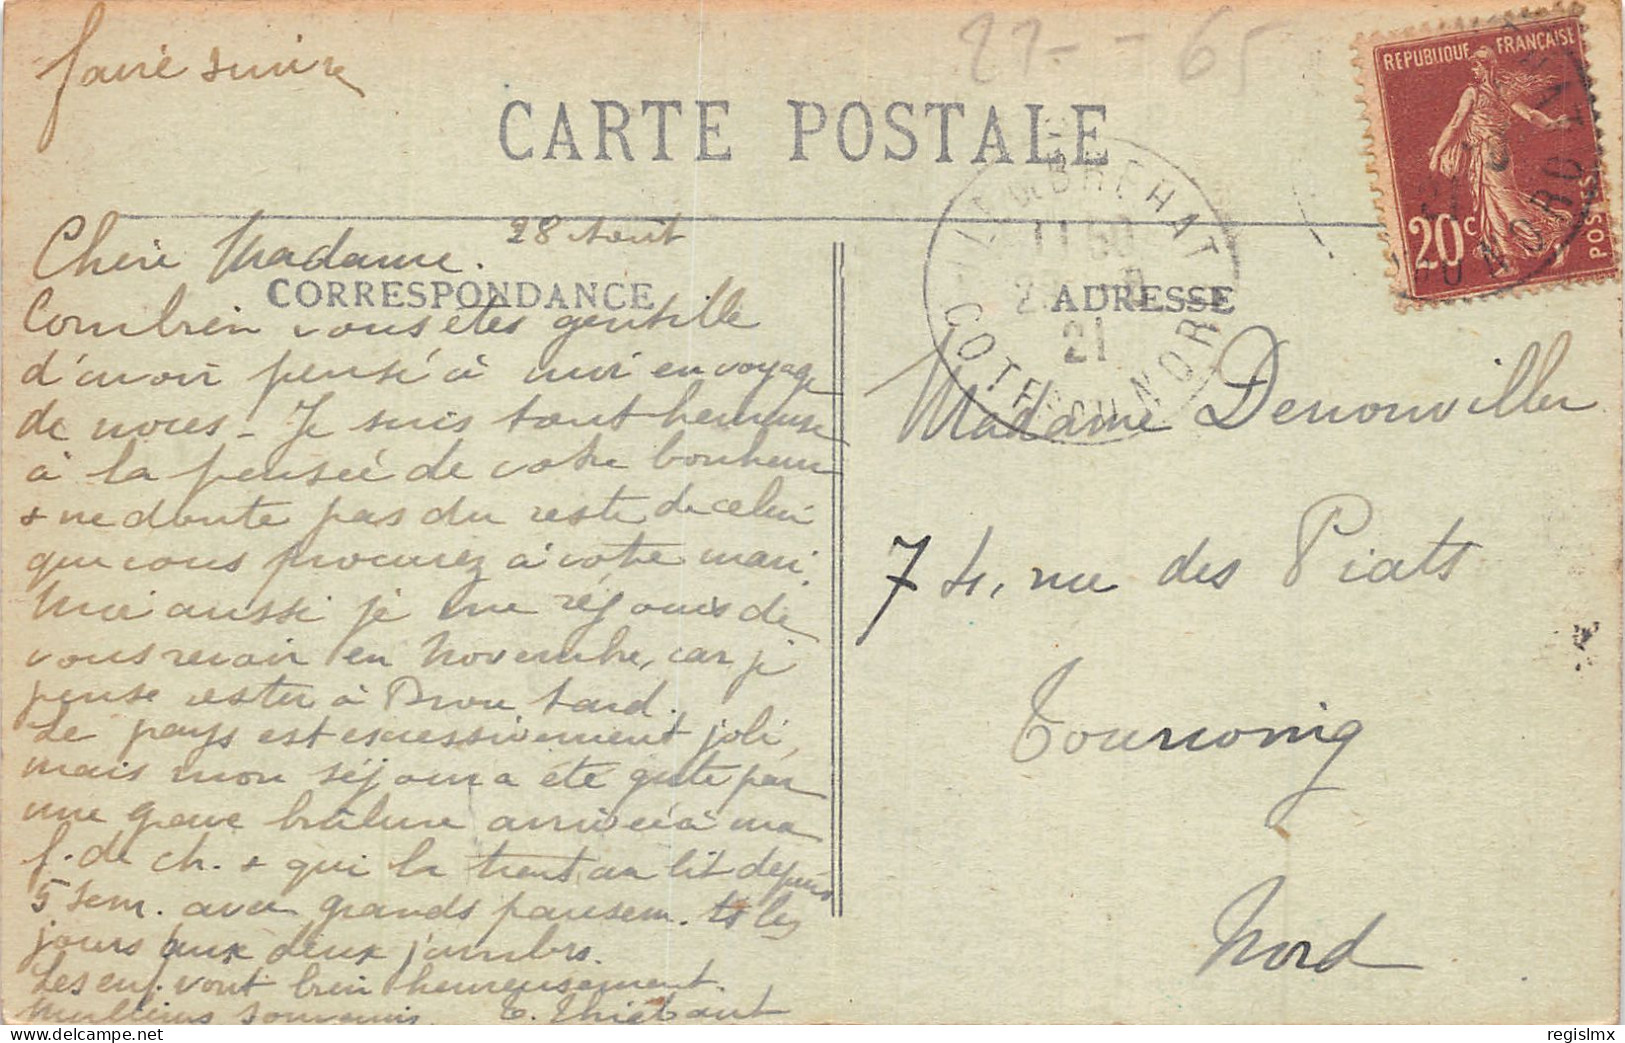 faire suivre
21 - - 65
CARTE POSTALE
REPUBLIQUE FRANÇAISE
20c
POSTES
ILE DE BREHAT
11 50
21
COTES DU NORD
28 Août
Chère Madame.
CORRESPONDANCE
Combien vous êtes gentille
d'avoir pensé à moi en voyage
de noces - Je suis tout heureuse
à la pensée de votre bonheur
+ ne doute pas du reste de celui
que vous procurez à votre mari.
Moi aussi je me réjouis de
vous revoir en Novembre, car je
pense rester à Brou tard.
Le pays est excessivement joli,
mais mon séjour a été gâté par
une grave brûlure arrivée à ma
f. de ch. + qui la tient au lit depuis
5 sem. avec grands pansem. ts les
jours aux deux jambes.
Les enf. vont bien heureusement.
Meilleurs souvenirs. E. Thiébaut
ADRESSE
Madame Denonviller
74, rue des Piats
Tourcoing
Nord
regislmx